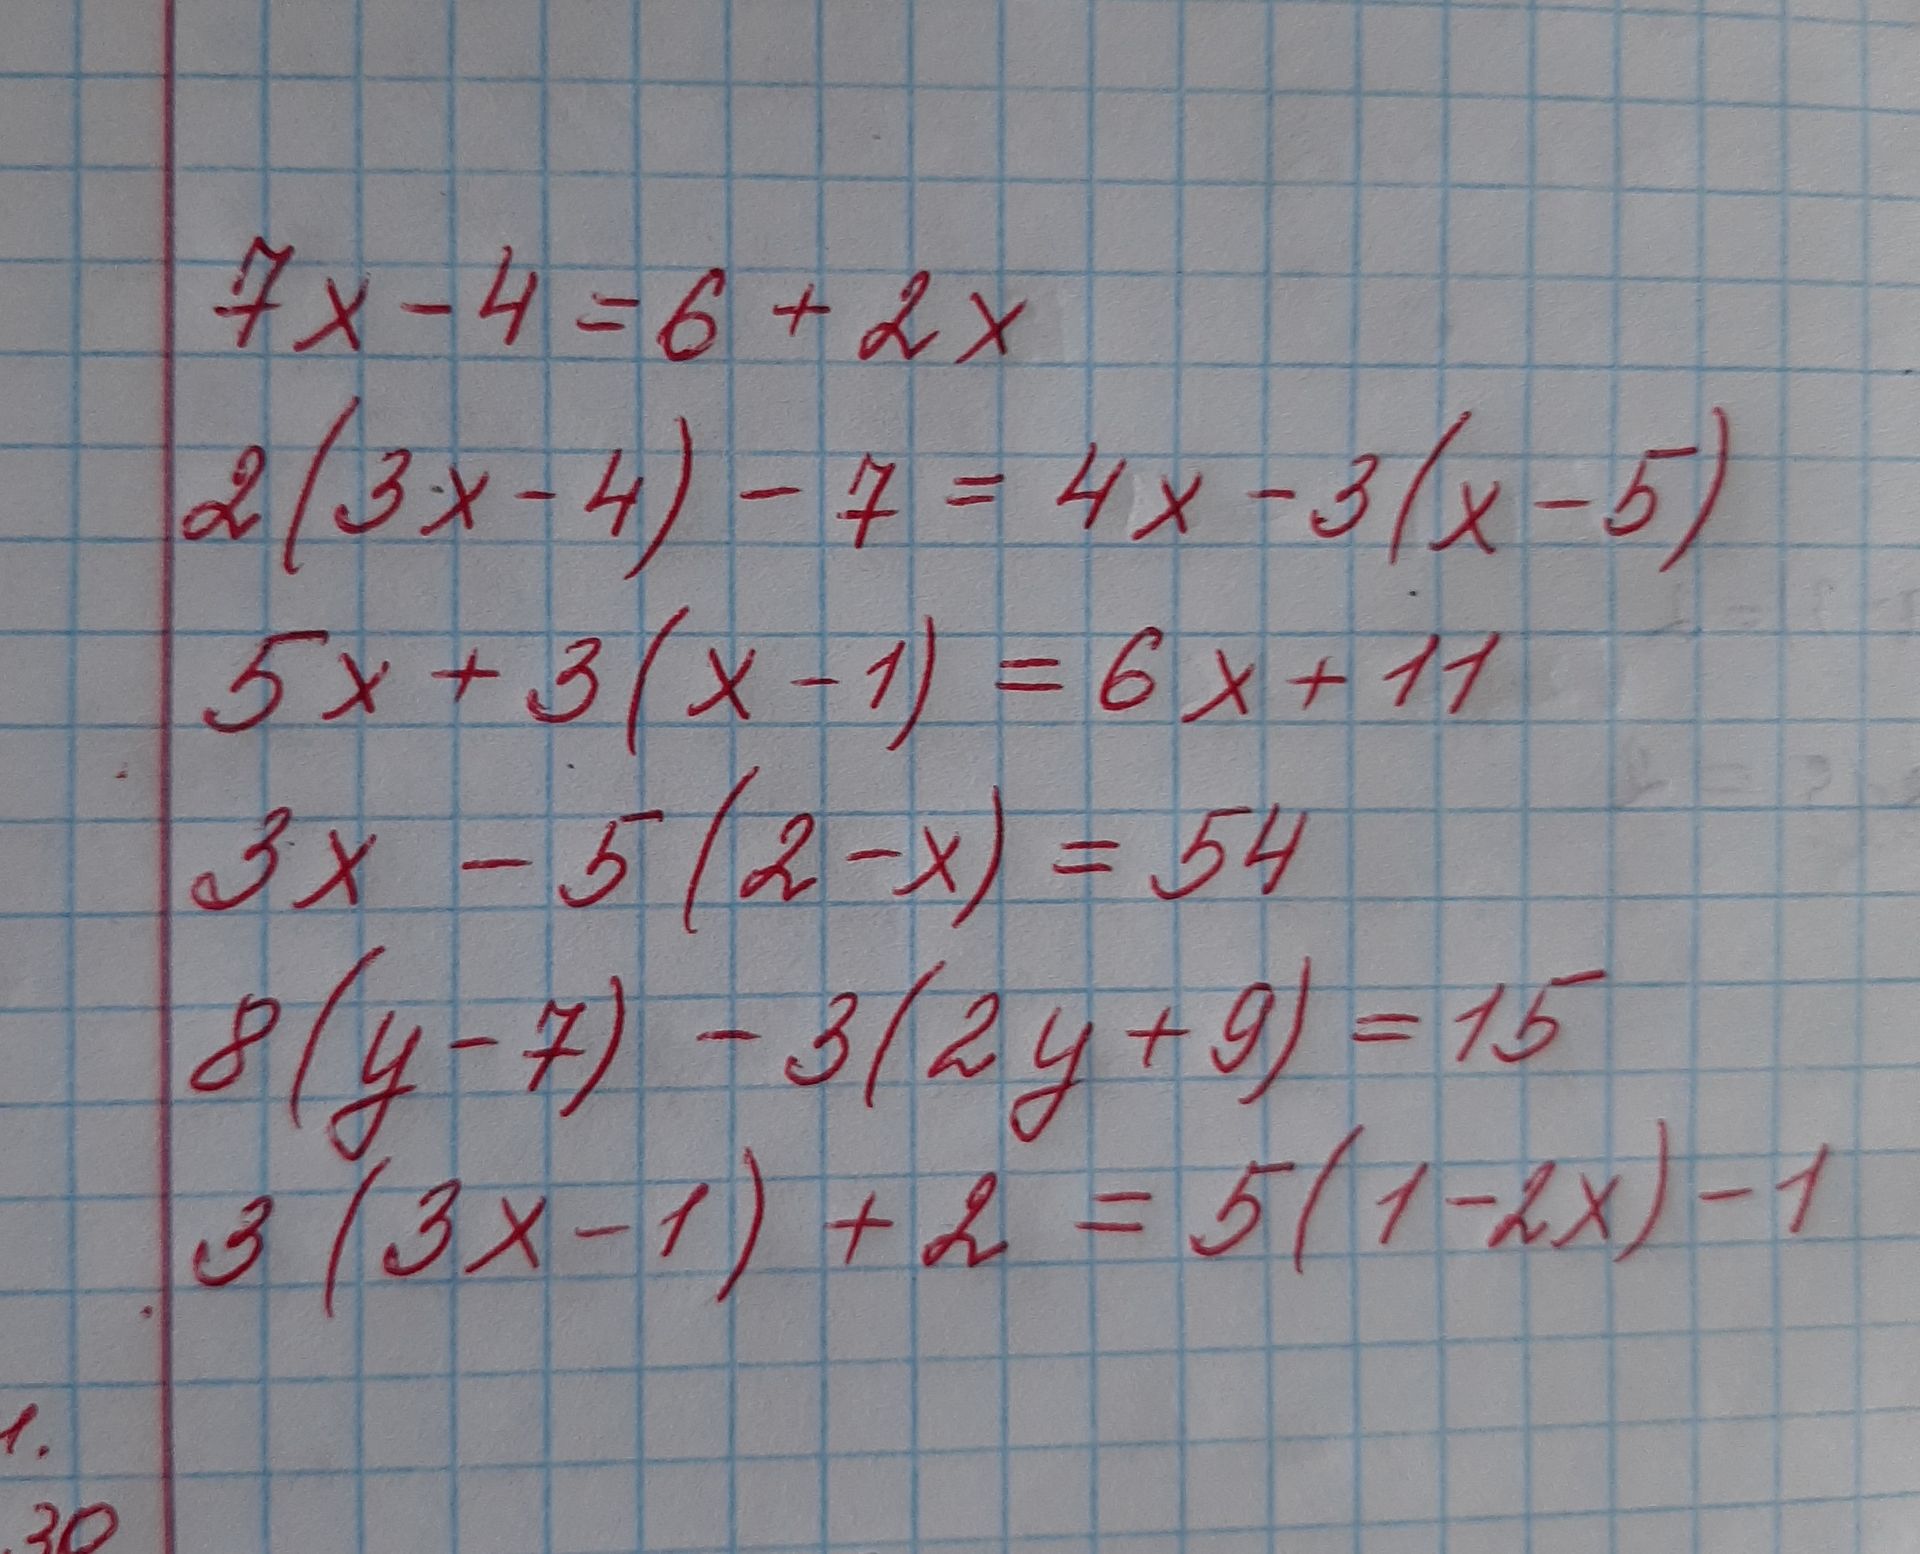 7x - 4 = 6 + 2x
2(3x - 4) - 7 = 4x - 3(x - 5)
5x + 3(x - 1) = 6x + 11
3x - 5(2 - x) = 54
8(y - 7) - 3(2y + 9) = 15
3(3x - 1) + 2 = 5(1 - 2x) - 1
1.
.30